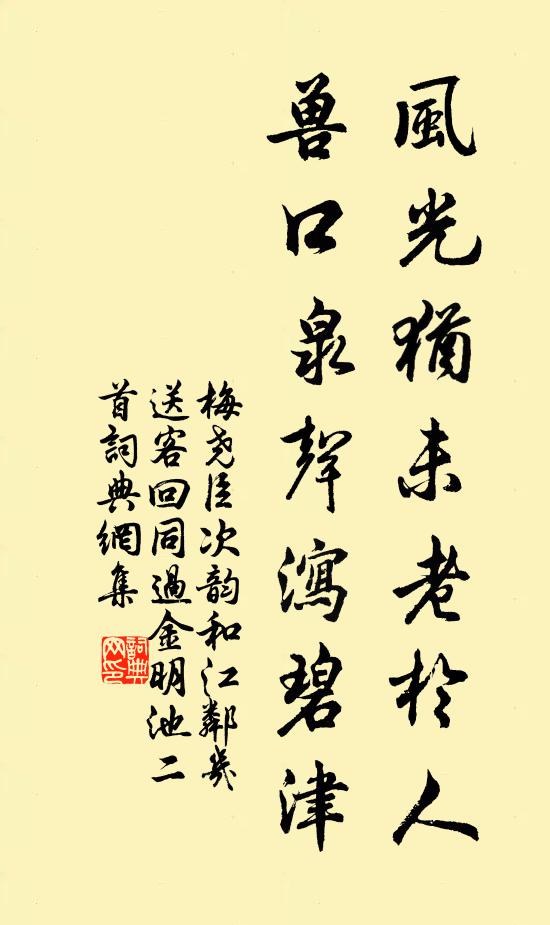 風光猶未老於人
兽口泉聲瀉碧津
梅尧臣次韵和江鄰幾
送客回同過金明池二
首詞典網集
詞典網印